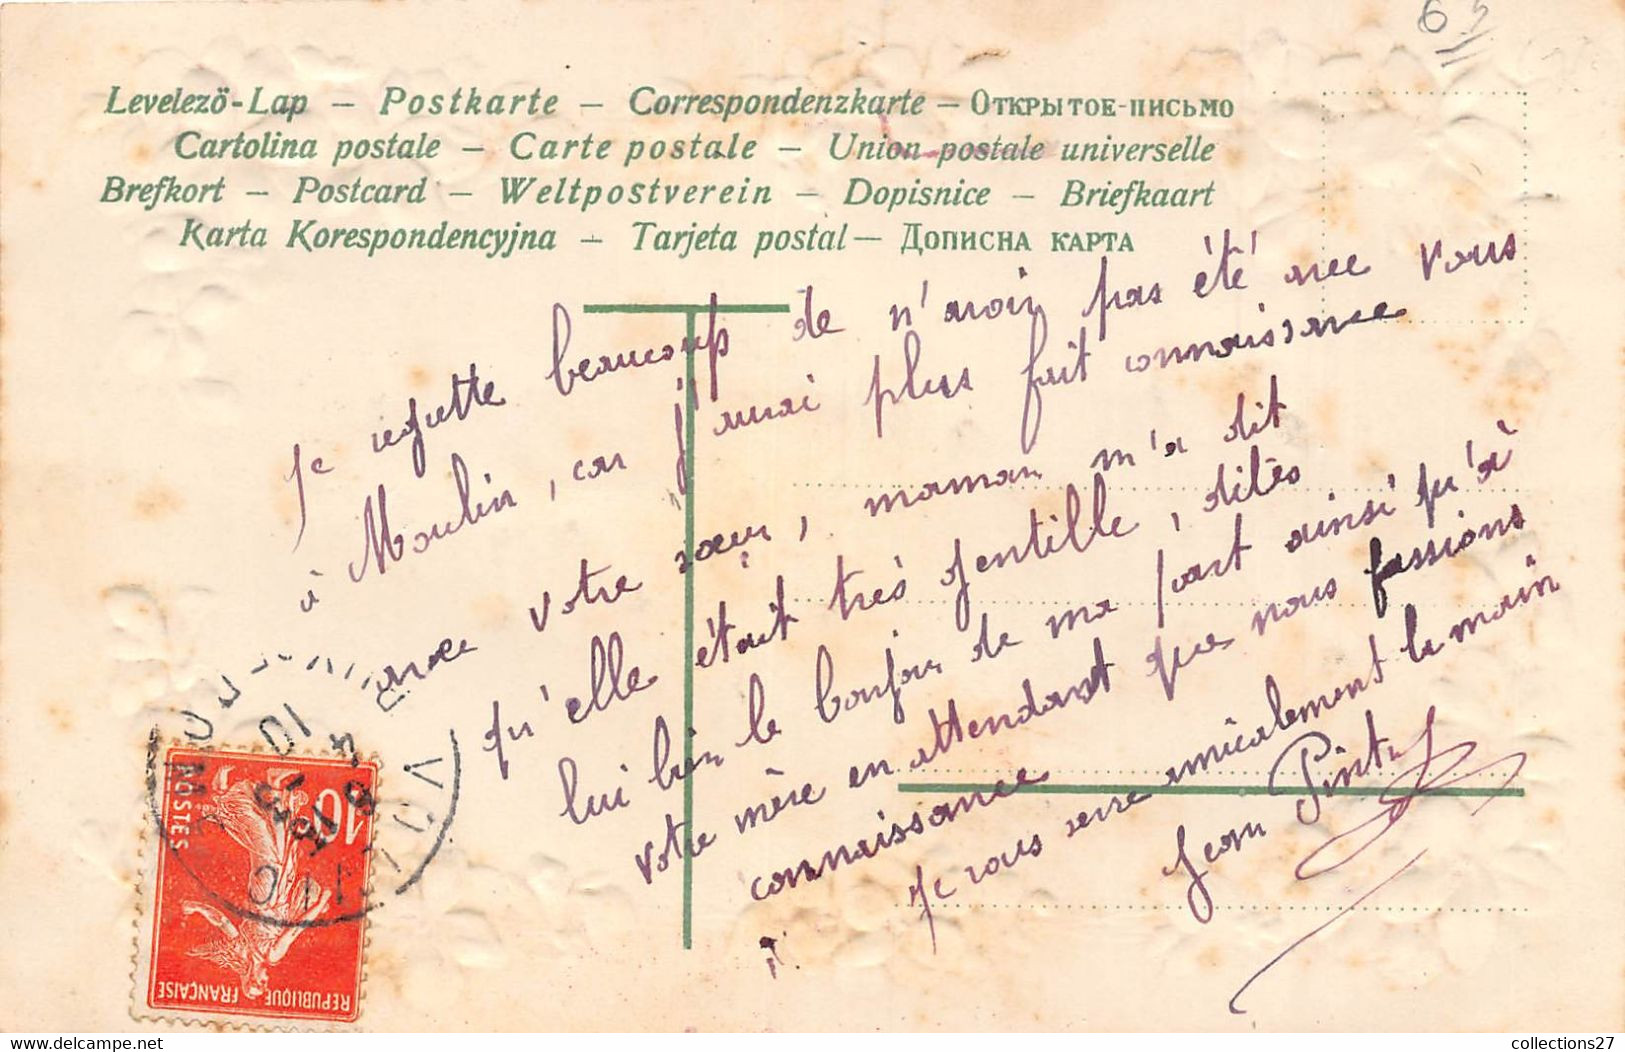 63
Levelező-Lap – Postkarte – Correspondenzkarte – Открытое-письмо
Cartolina postale – Carte postale – Union postale universelle
Brefkort – Postcard – Weltpostverein – Dopisnice – Briefkaart
Karta Korespondencyjna – Tarjeta postal – Дописна карта
Je regrette beaucoup de n'avoir pas été avec vous
à Moulin, car j'aurai plus fait connaissance
avec votre sœur, maman m'a dit
qu'elle était très gentille, dites
lui bien le bonjour de ma part ainsi qu'à
votre mère en attendant que nous fassions
connaissance
Je vous serre amicalement la main
Jean
10
POSTES
REPUBLIQUE FRANÇAISE
collections27